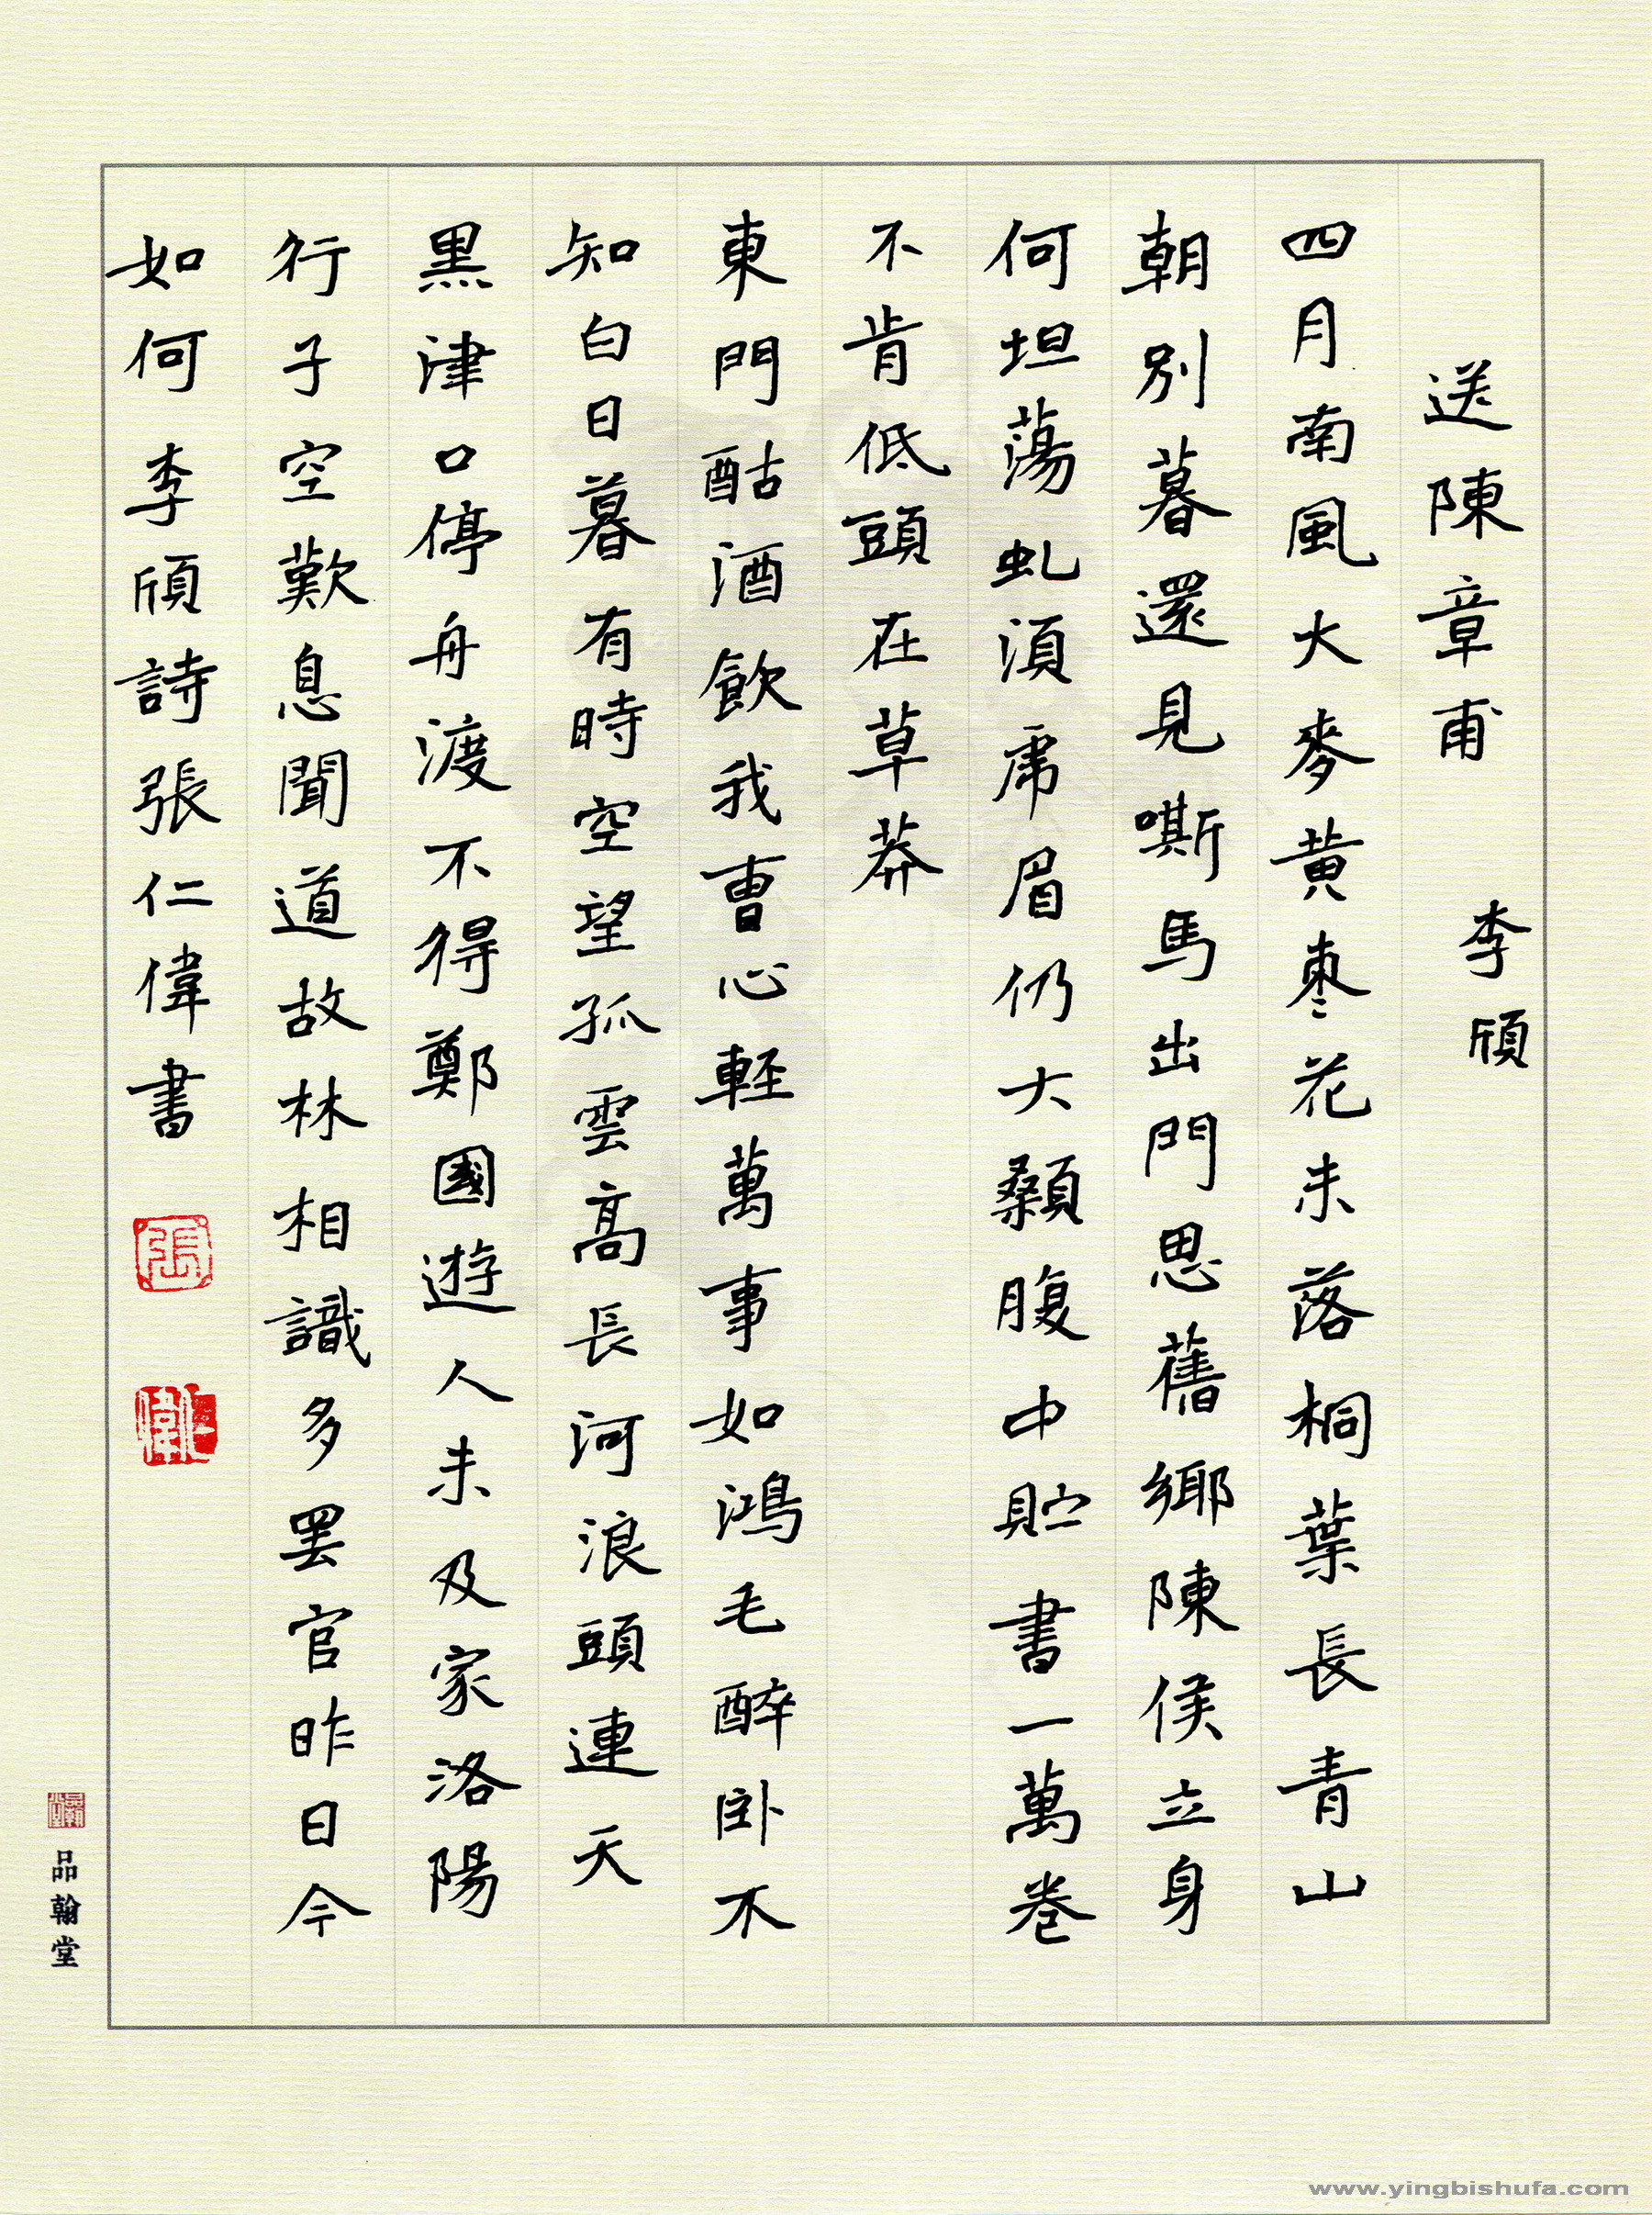 送陳章甫 李頎
四月南風大麥黄枣花未落桐葉長青山
朝別暮還見嘶馬出門思舊鄉陳侯立身
何坦蕩虬須虎眉仍大顙腹中貯書一萬卷
不肯低頭在草莽
東門酤酒飲我曹心軽萬事如鴻毛醉卧不
知白日暮有時空望孤雲高長河浪頭連天
黑津口停舟渡不得鄭國遊人未及家洛陽
行子空歎息聞道故林相識多罷官昨日今
如何李頎詩張仁偉書
張
仁偉
品翰堂
品翰堂
www.yingbishufa.com